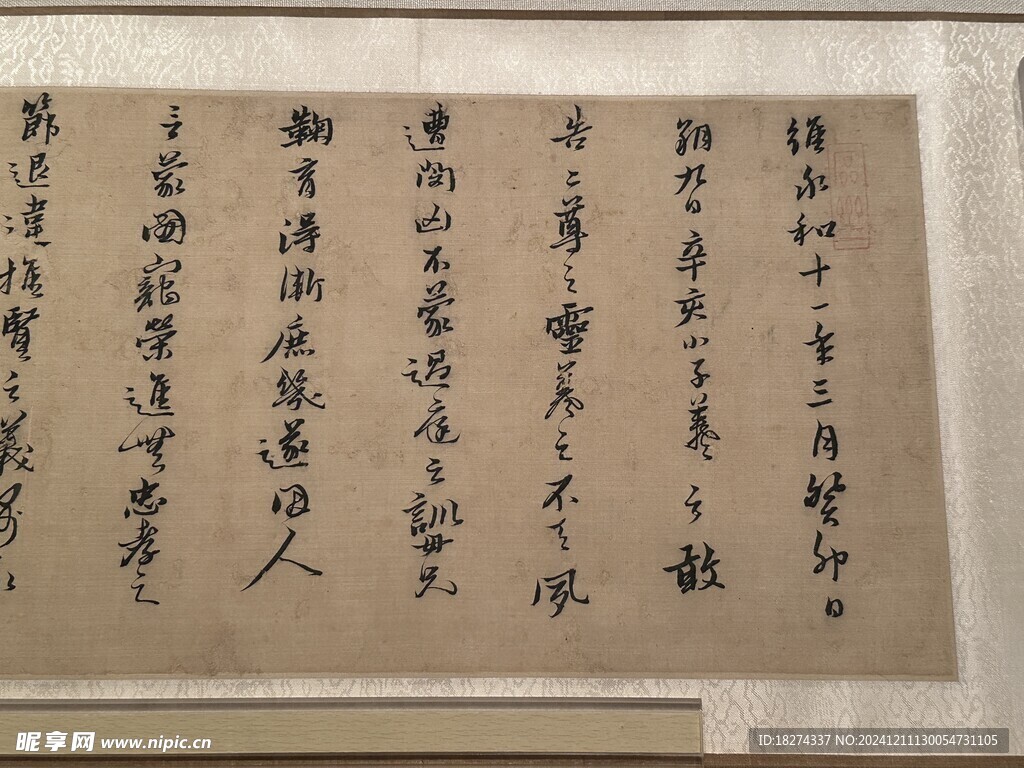 維永和十一年三月癸卯日
朔九日辛亥小子羲之敢
告二尊之靈羲之不天夙
遭閔凶不蒙過庭之訓母兄
鞠育得漸庶幾遂因人
乏蒙國寵榮進無忠孝之
節退違推賢之義每仰
昵享网 www.nipic.cn
ID:18274337 NO:20241211130054731105